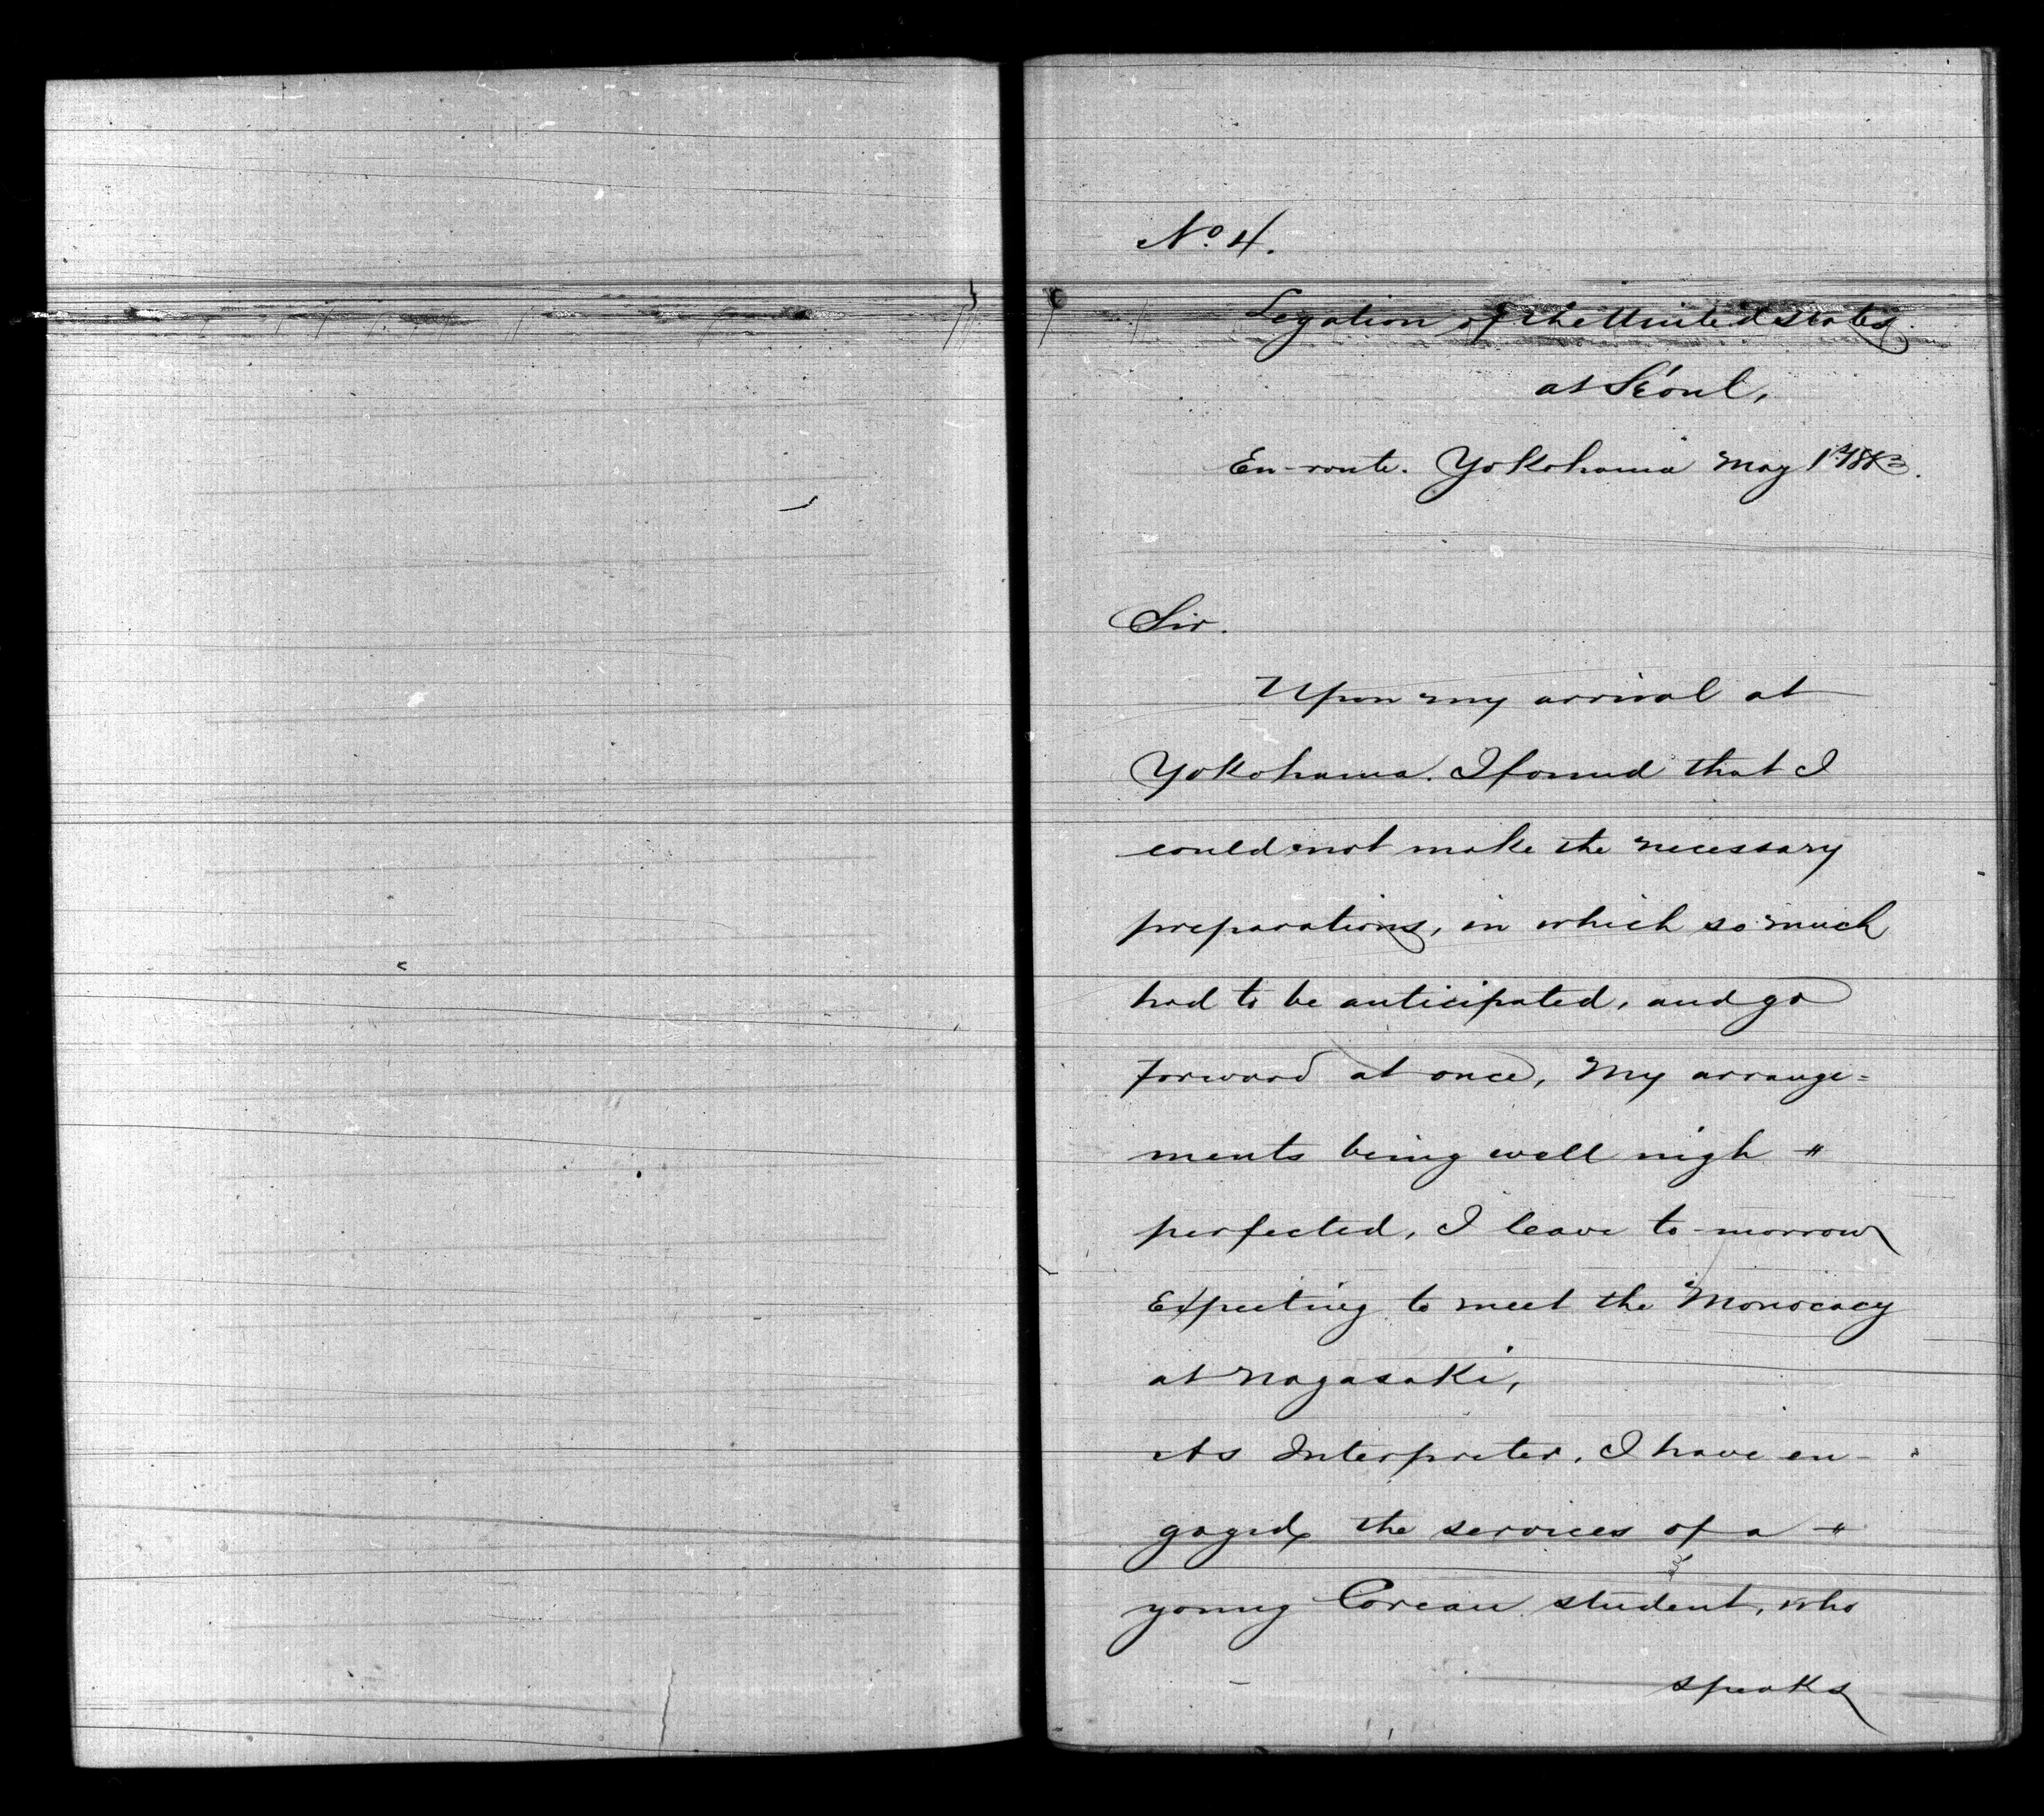 No. 4.
Legation of the United States.
at Séoul,
En-route. Yokohama May 1st 1883.
Sir.
Upon my arrival at
Yokohama. I found that I
could not make the necessary
preparations, in which so much
had to be anticipated, and go
forward at once, My arrange=
ments being well nigh
perfected, I leave to-morrow
Expecting to meet the Monocacy
at Nagasaki,
As Interpreter. I have en-
gaged, the services of a
young Corean student, who
speaks